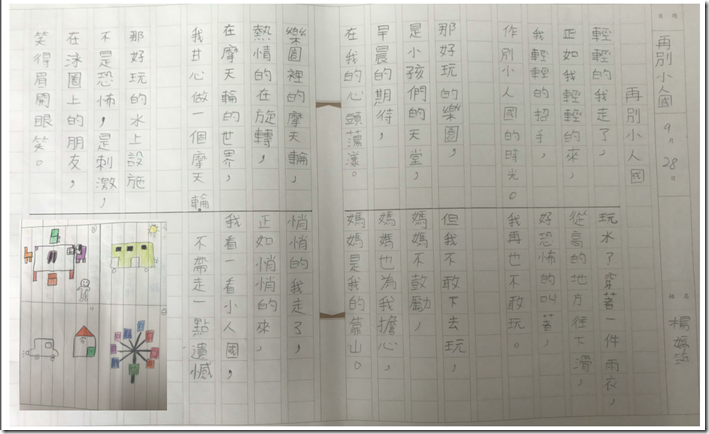 再別小人國 9月28日
姓名 楊
再別小人國
輕輕的我走了,
正如我輕輕的來,
我輕輕的招手,
作別小人國的時光。
那好玩的樂園,
是小孩們的天堂,
早晨的期待,
在我的心頭蕩漾。
樂園裡的摩天輪,
熱情的在旋轉,
在摩天輪的世界,
我甘心做一個摩天輪。
那好玩的水上設施
不是恐怖,是刺激,
在泳圈上的朋友,
笑得眉開眼笑。
玩水了穿著一件雨衣,
從高的地方往下滑,
好恐怖的叫著,
我再也不敢玩。
但我不敢下去玩,
媽媽不鼓勵,
媽媽也為我擔心,
媽媽是我的靠山。
悄悄的我走了,
正如悄悄的來,
我看一看小人國,
不帶走一點遺憾